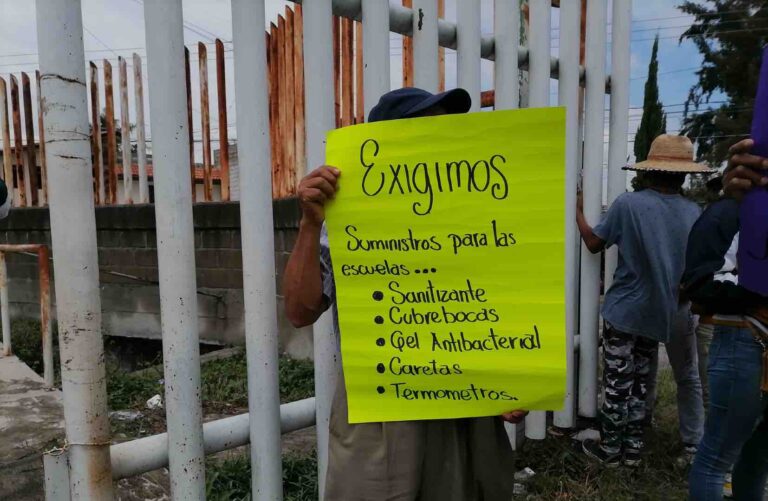 Exigimos
Suministros para las
escuelas...
• Sanitizante
• Cubrebocas
• Gel Antibacterial
• Caretas
• Termometros.